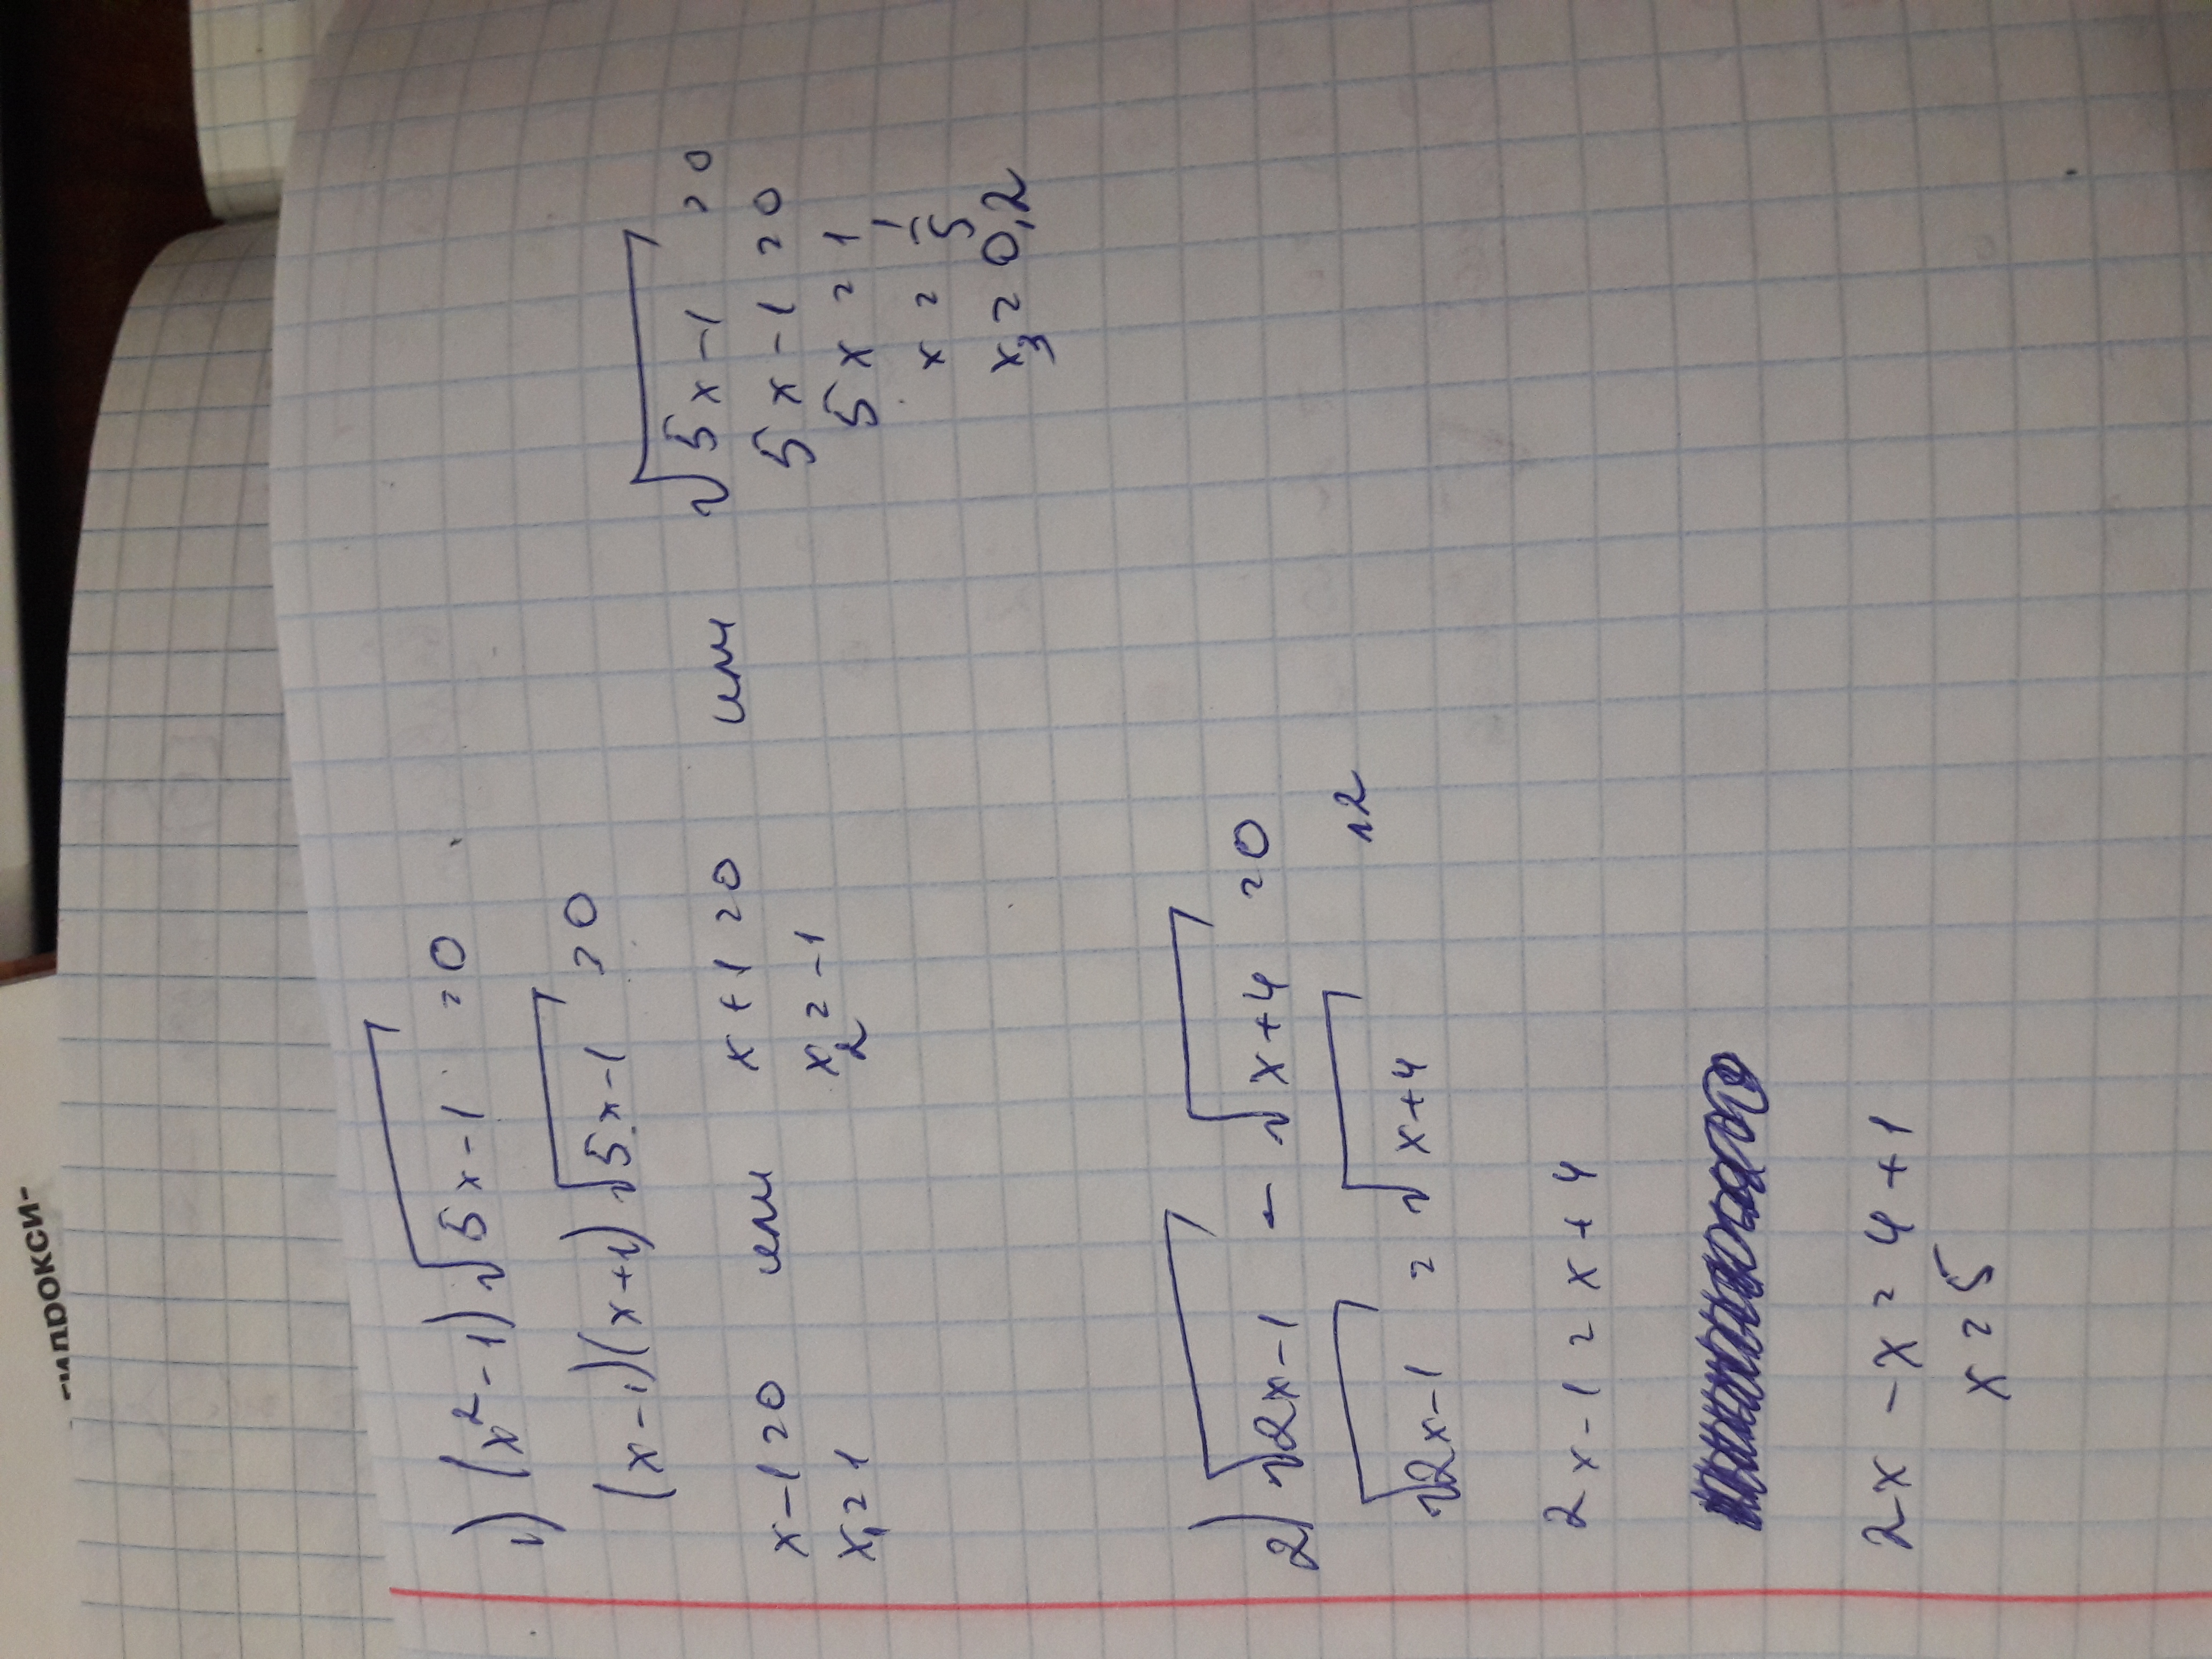 -ипрокси-
1) (x² - 1)√(5x - 1) = 0
(x - 1)(x + 1)√(5x - 1) = 0
x - 1 = 0 или x + 1 = 0 или √(5x - 1) = 0
x₁ = 1 x₂ = -1 5x - 1 = 0
5x = 1
x = 1/5
x₃ = 0,2
2) √(2x - 1) - √(x + 4) = 0
√(2x - 1) = √(x + 4) ↑2
2x - 1 = x + 4
2x - x = 4 + 1
x = 5